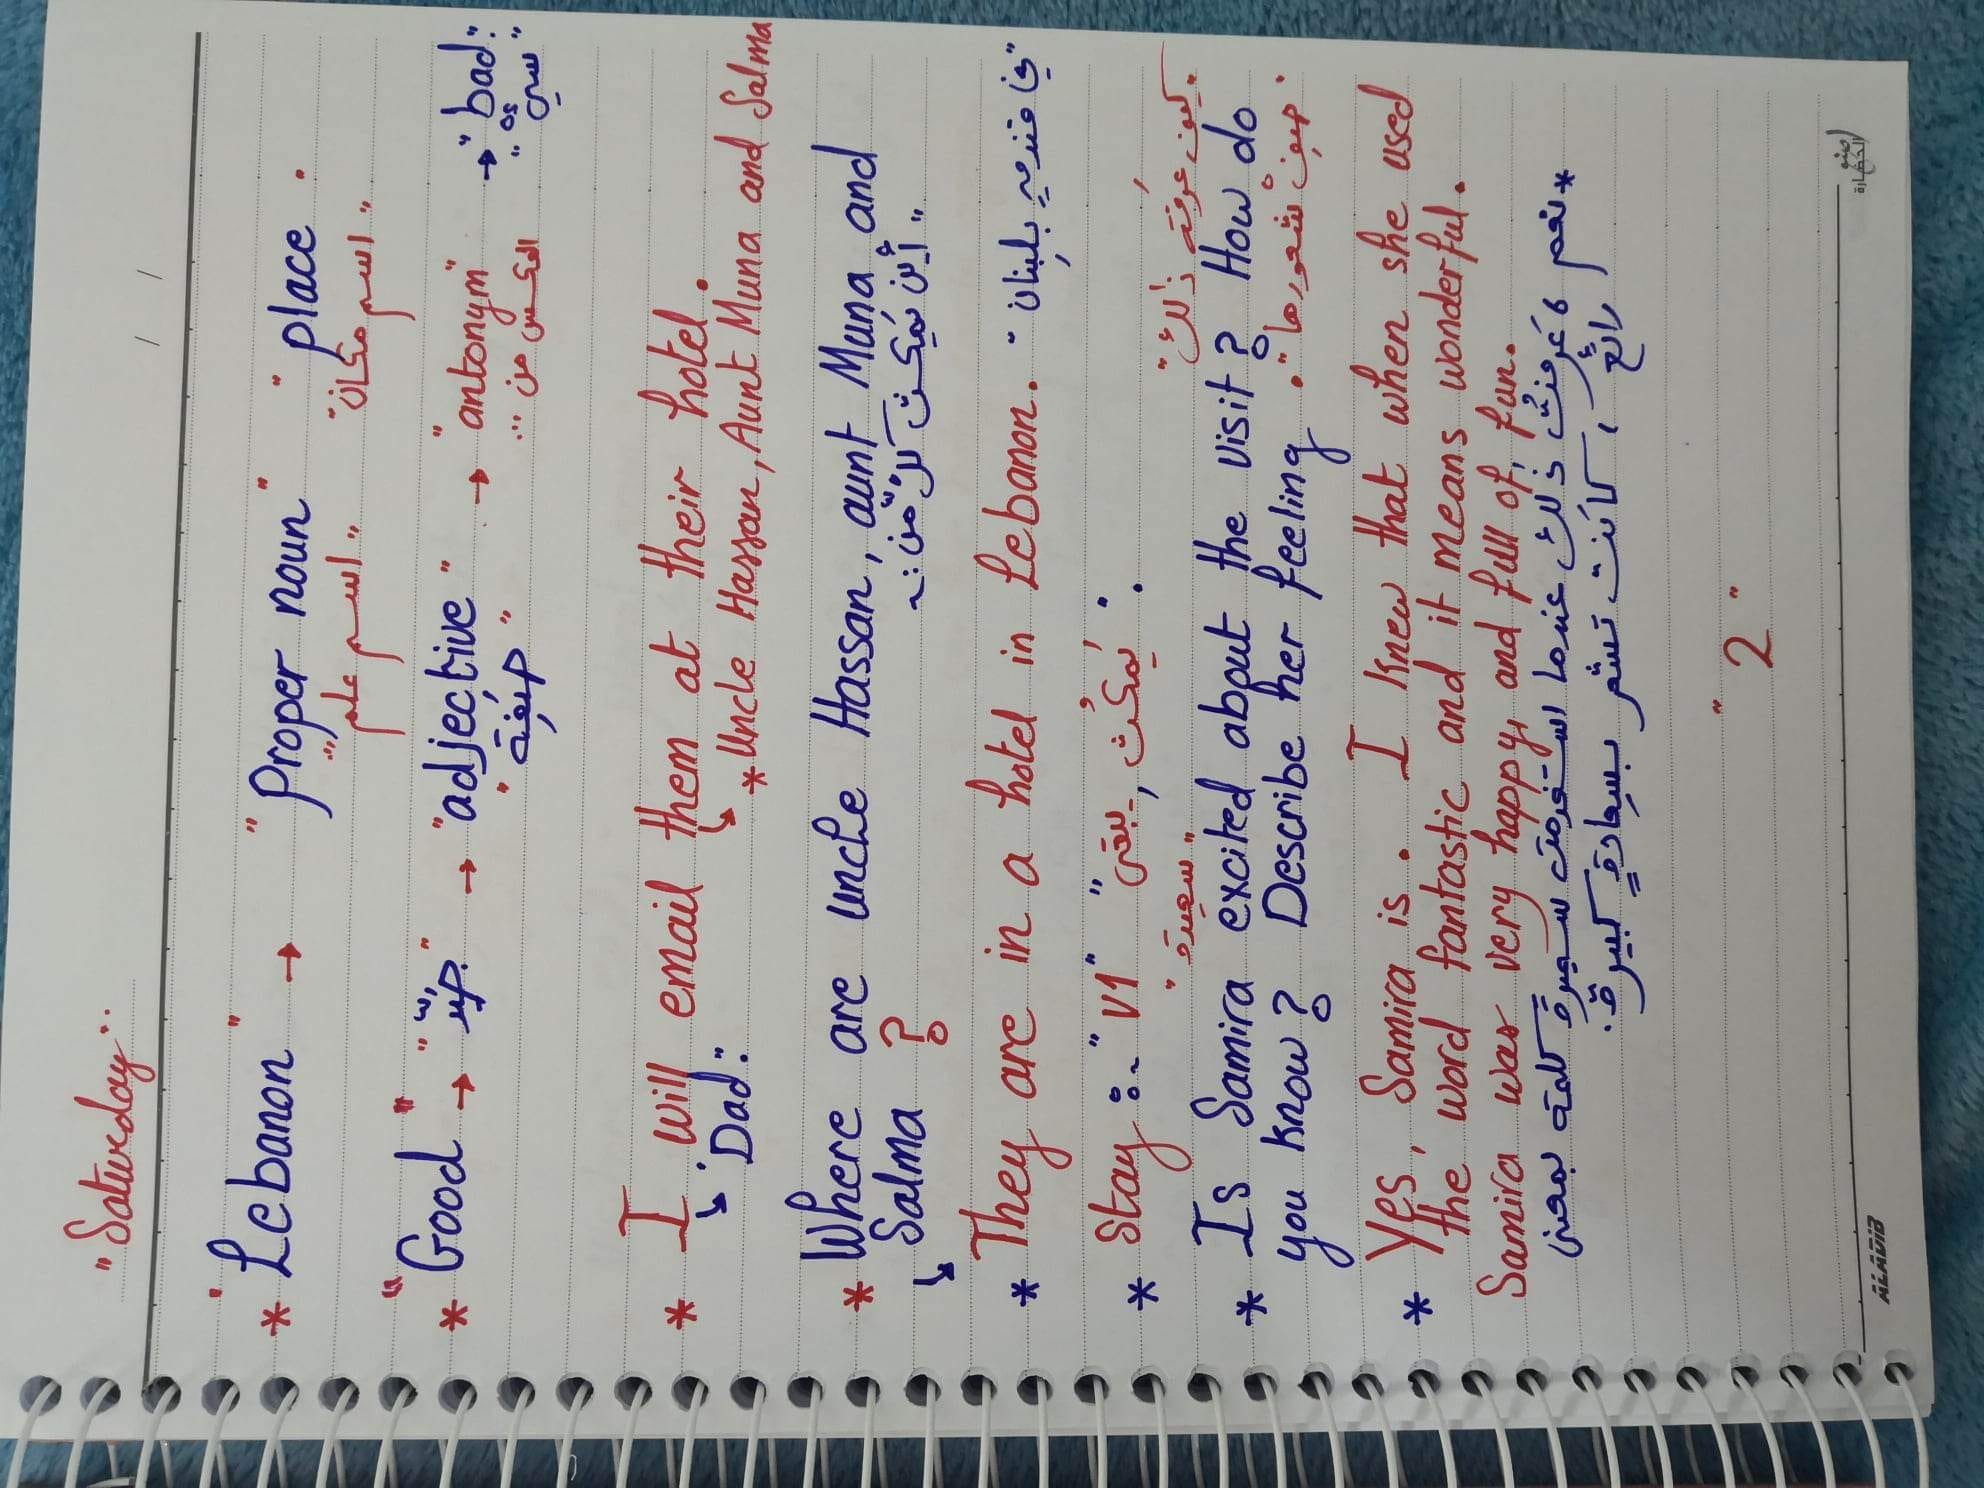 "Saturday"
/ /
* "Lebanon" → "Proper noun" "place".
"اسم علم" "اسم مكان"
* "Good" → "جيّد" → "adjective" → "antonym" → "bad"
"صفة" العكس من ... "سيء"
* I will email them at their hotel.
"Dad" * Uncle Hassan, Aunt Muna and Salma
* Where are uncle Hassan, aunt Muna and
Salma ? أين تمكث كلّ من
* They are in a hotel in Lebanon. "في فندق بلبنان"
* Stay: "V1" "يبقى, يمكُث".
"سعيدة" "كيف عرفت ذلك"
* Is Samira excited about the visit? How do
you know? Describe her feeling. "صِف شعورها".
* Yes, Samira is. I knew that when she used
the word fantastic and it means wonderful.
Samira was very happy and full of fun.
* نعم، عَرفتُ ذلك عندما استخدمت سميرة كلمة بمعنى
رائع، كانت تشعر بسعادةٍ كبيرة.
"2"
ALADIB